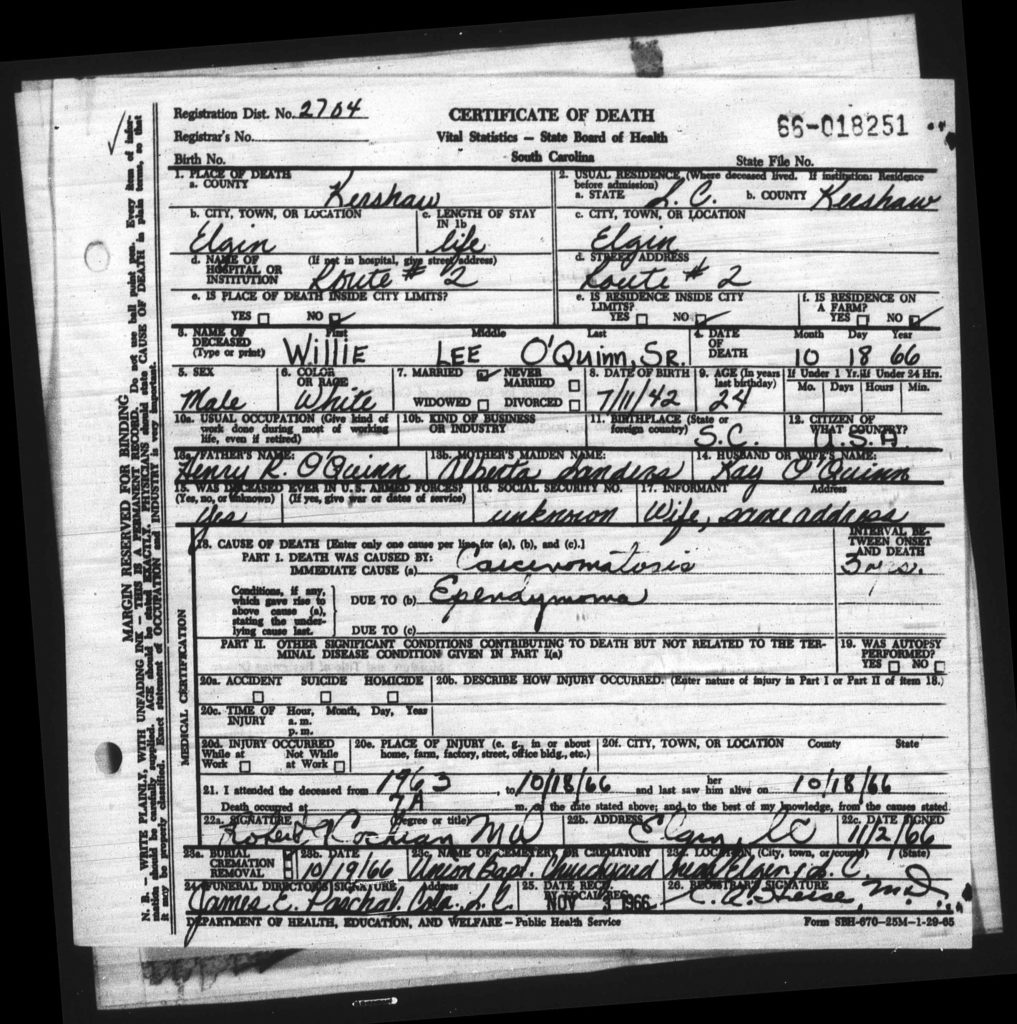 Registration Dist. No. 2704
CERTIFICATE OF DEATH
66-018251
Registrar's No.
Vital Statistics — State Board of Health
Birth No.
South Carolina
State File No.
1. PLACE OF DEATH
a. COUNTY
Kershaw
2. USUAL RESIDENCE (Where deceased lived. If institution: Residence before admission)
a. STATE S.C. b. COUNTY Kershaw
b. CITY, TOWN, OR LOCATION
Elgin
c. LENGTH OF STAY IN 1b
life
c. CITY, TOWN, OR LOCATION
Elgin
d. NAME OF HOSPITAL OR INSTITUTION (If not in hospital, give street address)
Route # 2
d. STREET ADDRESS
Route # 2
e. IS PLACE OF DEATH INSIDE CITY LIMITS?
YES NO
e. IS RESIDENCE INSIDE CITY LIMITS?
YES NO
f. IS RESIDENCE ON A FARM?
YES NO
3. NAME OF DECEASED (Type or print)
First Middle Last
Willie Lee O'Quinn, Sr.
4. DATE OF DEATH
Month Day Year
10 18 66
5. SEX
Male
6. COLOR OR RACE
White
7. MARRIED NEVER MARRIED
WIDOWED DIVORCED
8. DATE OF BIRTH
7/11/42
9. AGE (In years last birthday)
24
If Under 1 Yr. If Under 24 Hrs.
Mo. Days Hours Min.
10a. USUAL OCCUPATION (Give kind of work done during most of working life, even if retired)
10b. KIND OF BUSINESS OR INDUSTRY
11. BIRTHPLACE (State or foreign country)
S.C.
12. CITIZEN OF WHAT COUNTRY?
U.S.A
13a. FATHER'S NAME:
Henry R. O'Quinn
13b. MOTHER'S MAIDEN NAME:
Alberta Sanders
14. HUSBAND OR WIFE'S NAME:
Kay O'Quinn
15. WAS DECEASED EVER IN U. S. ARMED FORCES?
(Yes, no, or unknown) (If yes, give war or dates of service)
yes
16. SOCIAL SECURITY NO.
unknown
17. INFORMANT Address
Wife, same address
18. CAUSE OF DEATH [Enter only one cause per line for (a), (b), and (c).]
INTERVAL BETWEEN ONSET AND DEATH
PART I. DEATH WAS CAUSED BY:
IMMEDIATE CAUSE (a) Carcinomatosis
Conditions, if any, which gave rise to above cause (a), stating the underlying cause last.
DUE TO (b) Ependymoma
DUE TO (c)
PART II. OTHER SIGNIFICANT CONDITIONS CONTRIBUTING TO DEATH BUT NOT RELATED TO THE TERMINAL DISEASE CONDITION GIVEN IN PART I(a)
19. WAS AUTOPSY PERFORMED?
YES NO
20a. ACCIDENT SUICIDE HOMICIDE
20b. DESCRIBE HOW INJURY OCCURRED. (Enter nature of injury in Part I or Part II of item 18.)
20c. TIME OF INJURY Hour, Month, Day, Year
a. m.
p. m.
20d. INJURY OCCURRED
While at Work Not While at Work
20e. PLACE OF INJURY (e. g., in or about home, farm, factory, street, office bldg., etc.)
20f. CITY, TOWN, OR LOCATION County State
21. I attended the deceased from 1963, to 10/18/66 and last saw her him alive on 10/18/66
Death occurred at 7A m. on the date stated above; and to the best of my knowledge, from the causes stated.
22a. SIGNATURE (Degree or title)
Robert Cochran MD
22b. ADDRESS
Elgin, SC
22c. DATE SIGNED
11/2/66
23a. BURIAL CREMATION REMOVAL
23b. DATE
10/19/66
23c. NAME OF CEMETERY OR CREMATORY
Union Bapt. Churchyard
23d. LOCATION (City, town, or county) (State)
near Elgin, S.C.
24. FUNERAL DIRECTOR'S SIGNATURE Address
James E. Paschal, Cola. S.C.
25. DATE REC'D BY LOCAL REG.
NOV 1966
26. REGISTRAR'S SIGNATURE
M.D.
DEPARTMENT OF HEALTH, EDUCATION, AND WELFARE – Public Health Service
Form SBH-670-25M-1-29-65
MEDICAL CERTIFICATION
MARGIN RESERVED FOR BINDING
N. B. — WRITE PLAINLY, WITH UNFADING INK - THIS IS A PERMANENT RECORD. Do not use ball point pen. Every item of information should be carefully supplied. AGE should be stated EXACTLY. PHYSICIANS should state CAUSE OF DEATH in plain terms, so that it may be properly classified. Exact statement of OCCUPATION and INDUSTRY is very important.